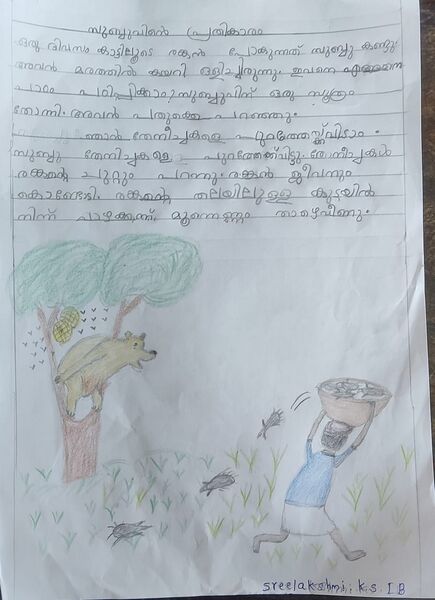 സുബ്ബുവിന്റെ പ്രതികാരം
ഒരു ദിവസം കാട്ടിലൂടെ രങ്കൻ പോകുന്നത് സുബ്ബു കണ്ടു.
അവൻ മരത്തിൽ കയറി ഒളിച്ചിരുന്നു. ഇവനെ എങ്ങനെ
പാഠം പഠിപ്പിക്കാം? സുബ്ബുവിന് ഒരു സൂത്രം
തോന്നി. അവൻ പതുക്കെ പറഞ്ഞു.
ഞാൻ തേനീച്ചകളെ പുറത്തേയ്ക്ക് വിടാം.
സുബ്ബു തേനീച്ചകളെ പുറത്തേക്ക് വിട്ടു. തേനീച്ചകൾ
രങ്കന്റെ ചുറ്റും പറന്നു. രങ്കൻ ജീവനും
കൊണ്ടോടി. രങ്കന്റെ തലയിലുള്ള കുട്ടയിൽ
നിന്ന് മൂന്നെണ്ണം താഴെവീണു.
sreelakshmi. k.s. I B